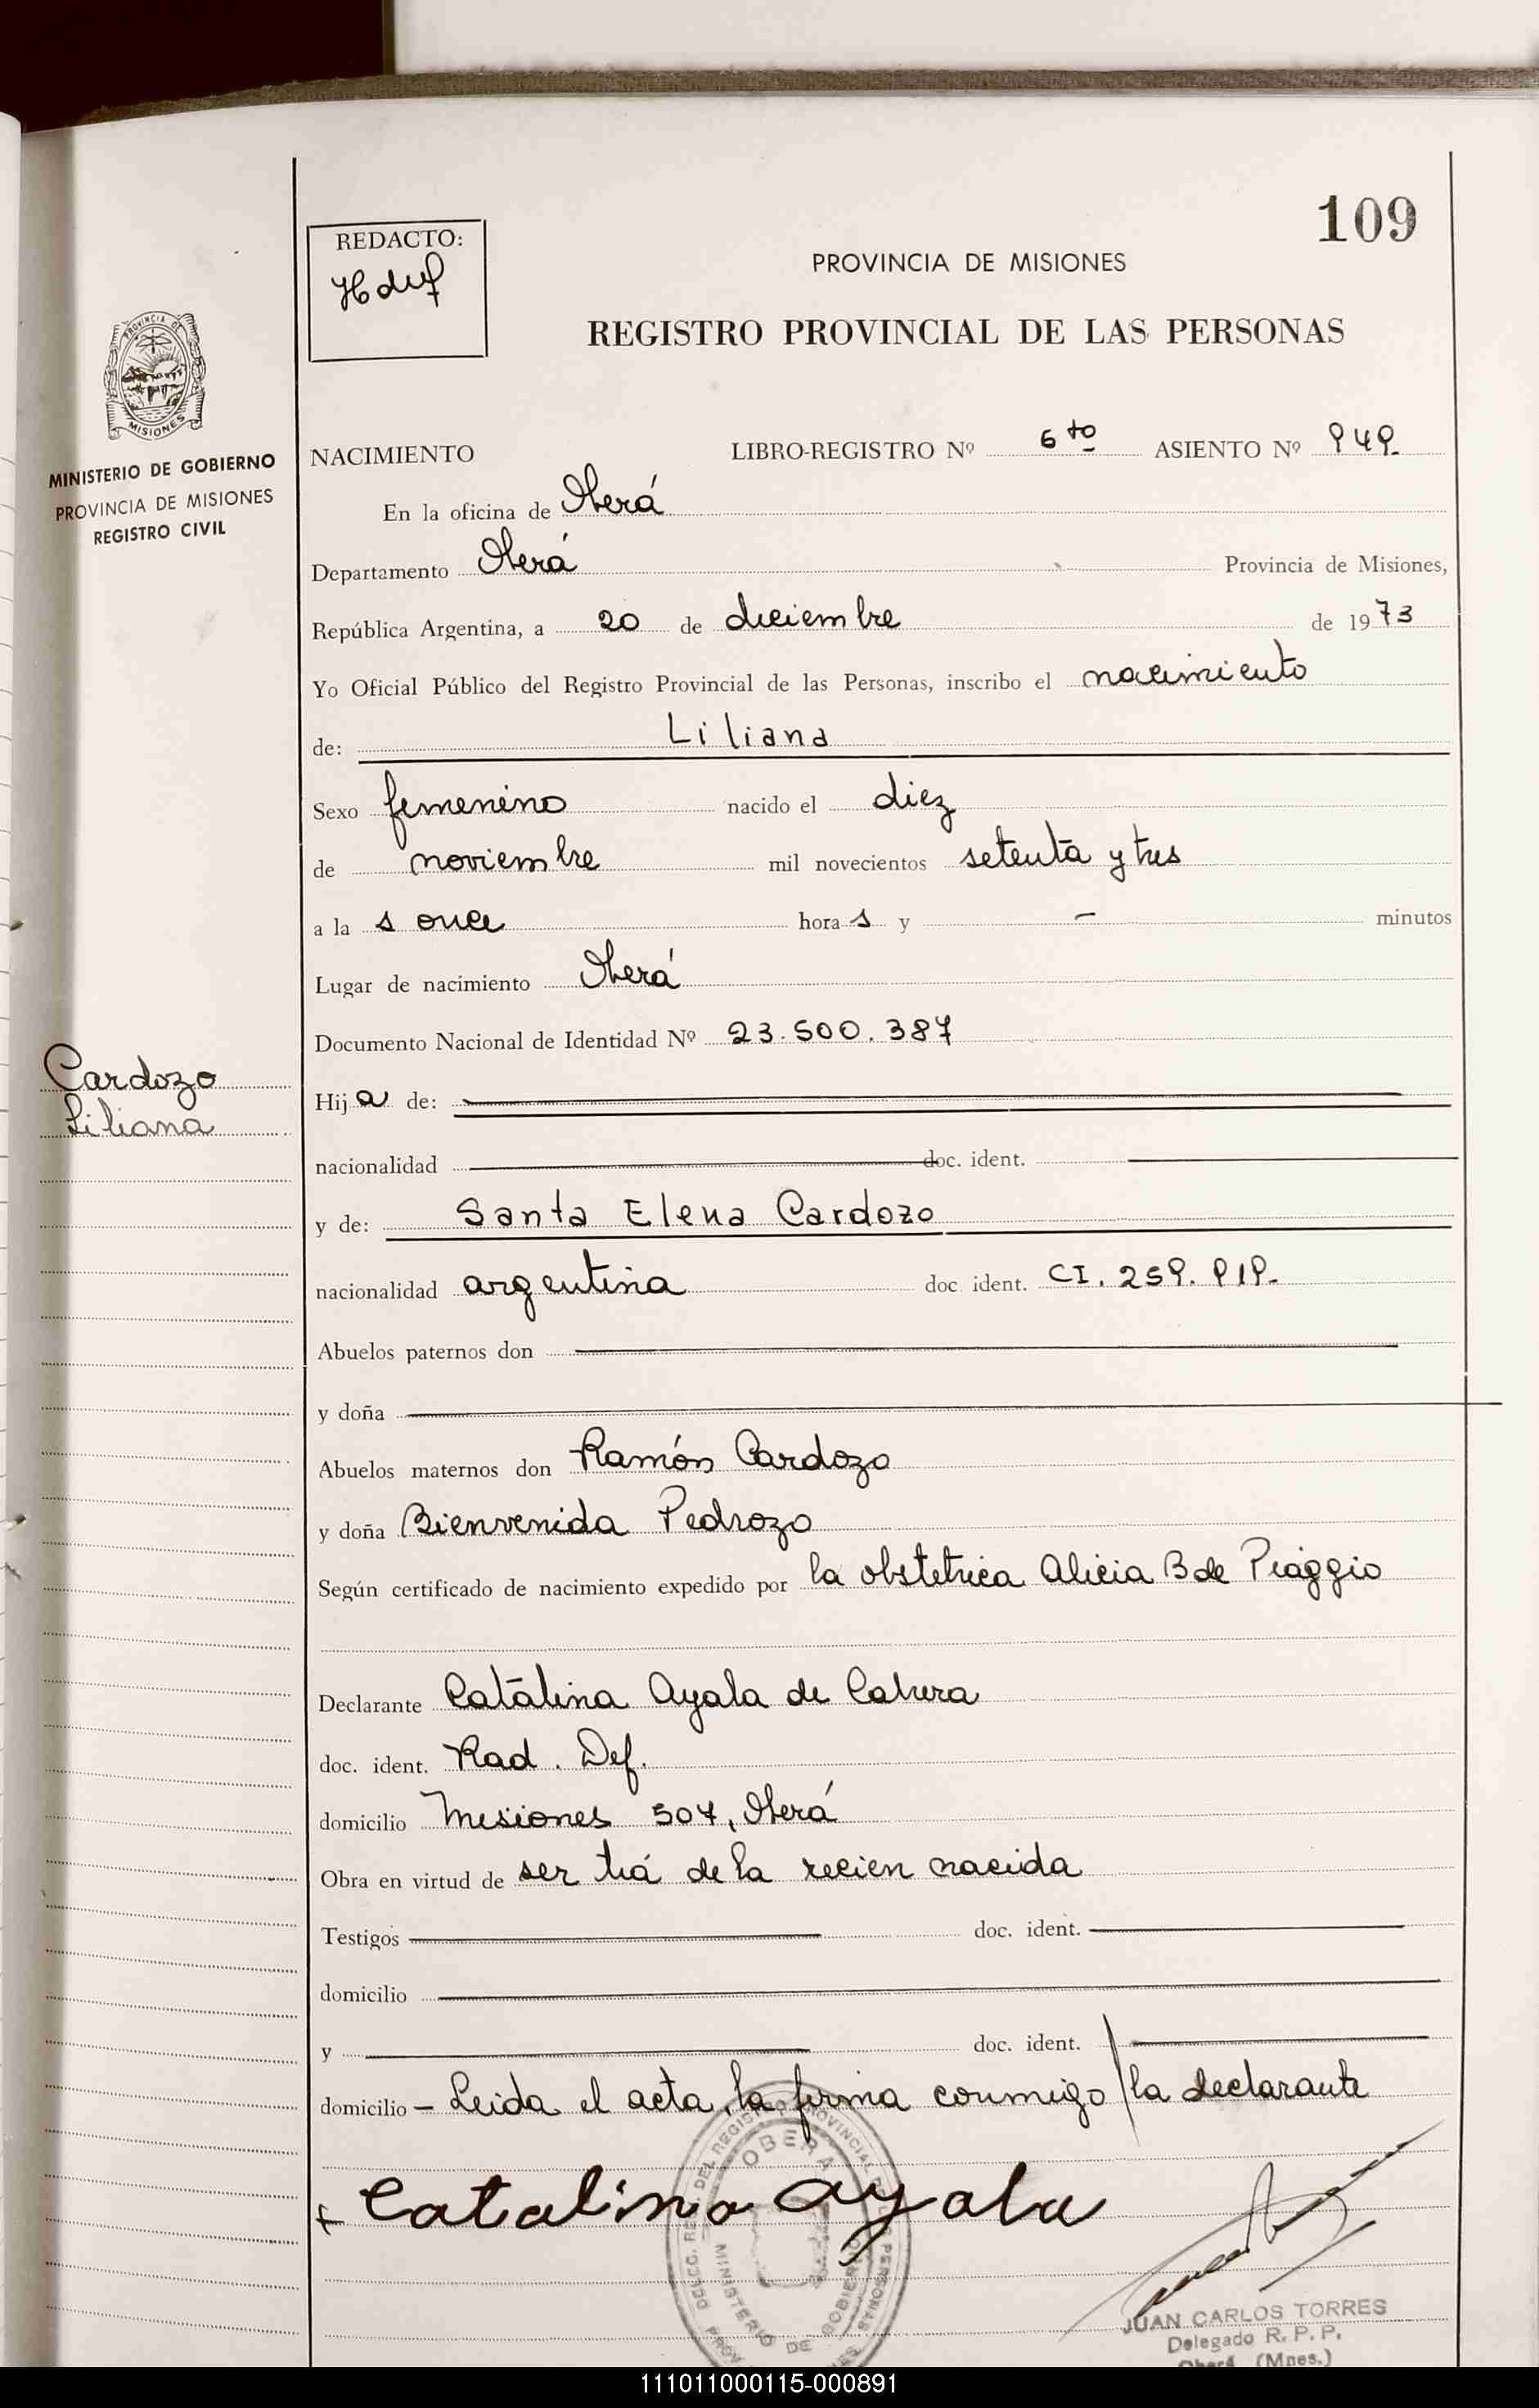 109
REDACTO:
PROVINCIA DE MISIONES
REGISTRO PROVINCIAL DE LAS PERSONAS
PROVINCIA DE
MISIONES
MINISTERIO DE GOBIERNO
PROVINCIA DE MISIONES
REGISTRO CIVIL
NACIMIENTO LIBRO-REGISTRO Nº 6to ASIENTO Nº 949
En la oficina de Oberá
Departamento Oberá Provincia de Misiones,
República Argentina, a 20 de diciembre de 1973
Yo Oficial Público del Registro Provincial de las Personas, inscribo el nacimiento
de: Liliana
Sexo femenino nacido el diez
de noviembre mil novecientos setenta y tres
a la s once hora s y - minutos
Lugar de nacimiento Oberá
Documento Nacional de Identidad Nº 23.500.387
Cardozo
Liliana
Hij a de:
nacionalidad doc. ident.
y de: Santa Elena Cardozo
nacionalidad argentina doc ident. CI. 259.919-
Abuelos paternos don
y doña
Abuelos maternos don Ramón Cardozo
y doña Bienvenida Pedrozo
Según certificado de nacimiento expedido por la obstetrica Alicia B de Piaggio
Declarante Catalina Ayala de Cabrera
doc. ident. Rad. Def.
domicilio Misiones 507, Oberá
Obra en virtud de ser tiá de la recien nacida
Testigos doc. ident.
domicilio
y doc. ident.
domicilio - Leida el acta, la firma conmigo la declarante
Catalina Ayala
OBERA
MINISTERIO DE GOBIERNO
JUAN CARLOS TORRES
Delegado R. P. P.
Oberá (Mnes.)
111011000115-000891